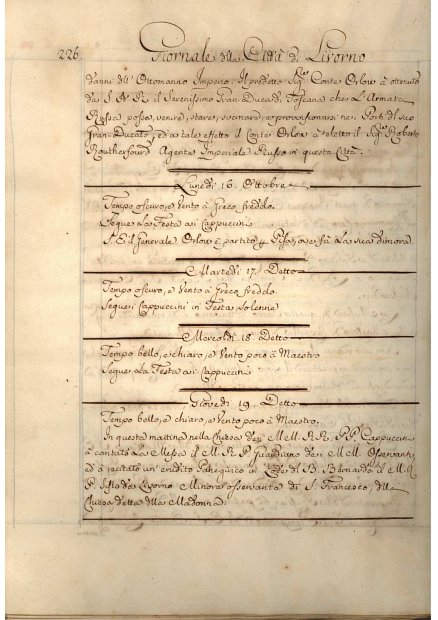 226. Giornale della Città di Livorno
danni dell' Ottomanno Imperio. Il predetto Sig.e Conte Orlow à ottenuto
da S. A. R. il Serenissimo Gran-Duca di Toscana che L'Armata
Russa possa venire, stare, svernare, e provisionarsi nei Porti del suo
Gran-Ducato, ed a tale effetto il Conte Orlow à eletto il Sig.e Roberto
Routherfourd Agente Imperiale Russo in questa Città.
Lunedì 16. Ottobre
Tempo oscuro, e Vento à Greco freddo.
Segue La Festa ai Cappuccini
S. E. il Generale Orlow è partito p Pisa, ove fà La sua dimora
Martedì 17. Detto
Tempo oscuro, e Vento à Greco freddo.
Segue i Cappuccini in Festa solenne
Mercoldì 18. Detto
Tempo bello, e chiaro, e Vento poco à Maestro
Segue La Festa ai Cappuccini
Giovedì 19. Detto
Tempo bello, e chiaro, e Vento poco à Maestro.
In questa mattina nella Chiesa dei M. M. R. R. P. P. Cappuccini
à cantato La Messa il M. R. P. Guardiano dei M. M. Osservanti,
ed à recitato un' erudito Panegirico in Lode del B. Bernardo il M. R.
P. Sisto da Livorno Minore osservante di S. Francesco, della
Chiesa detta della Madonna.